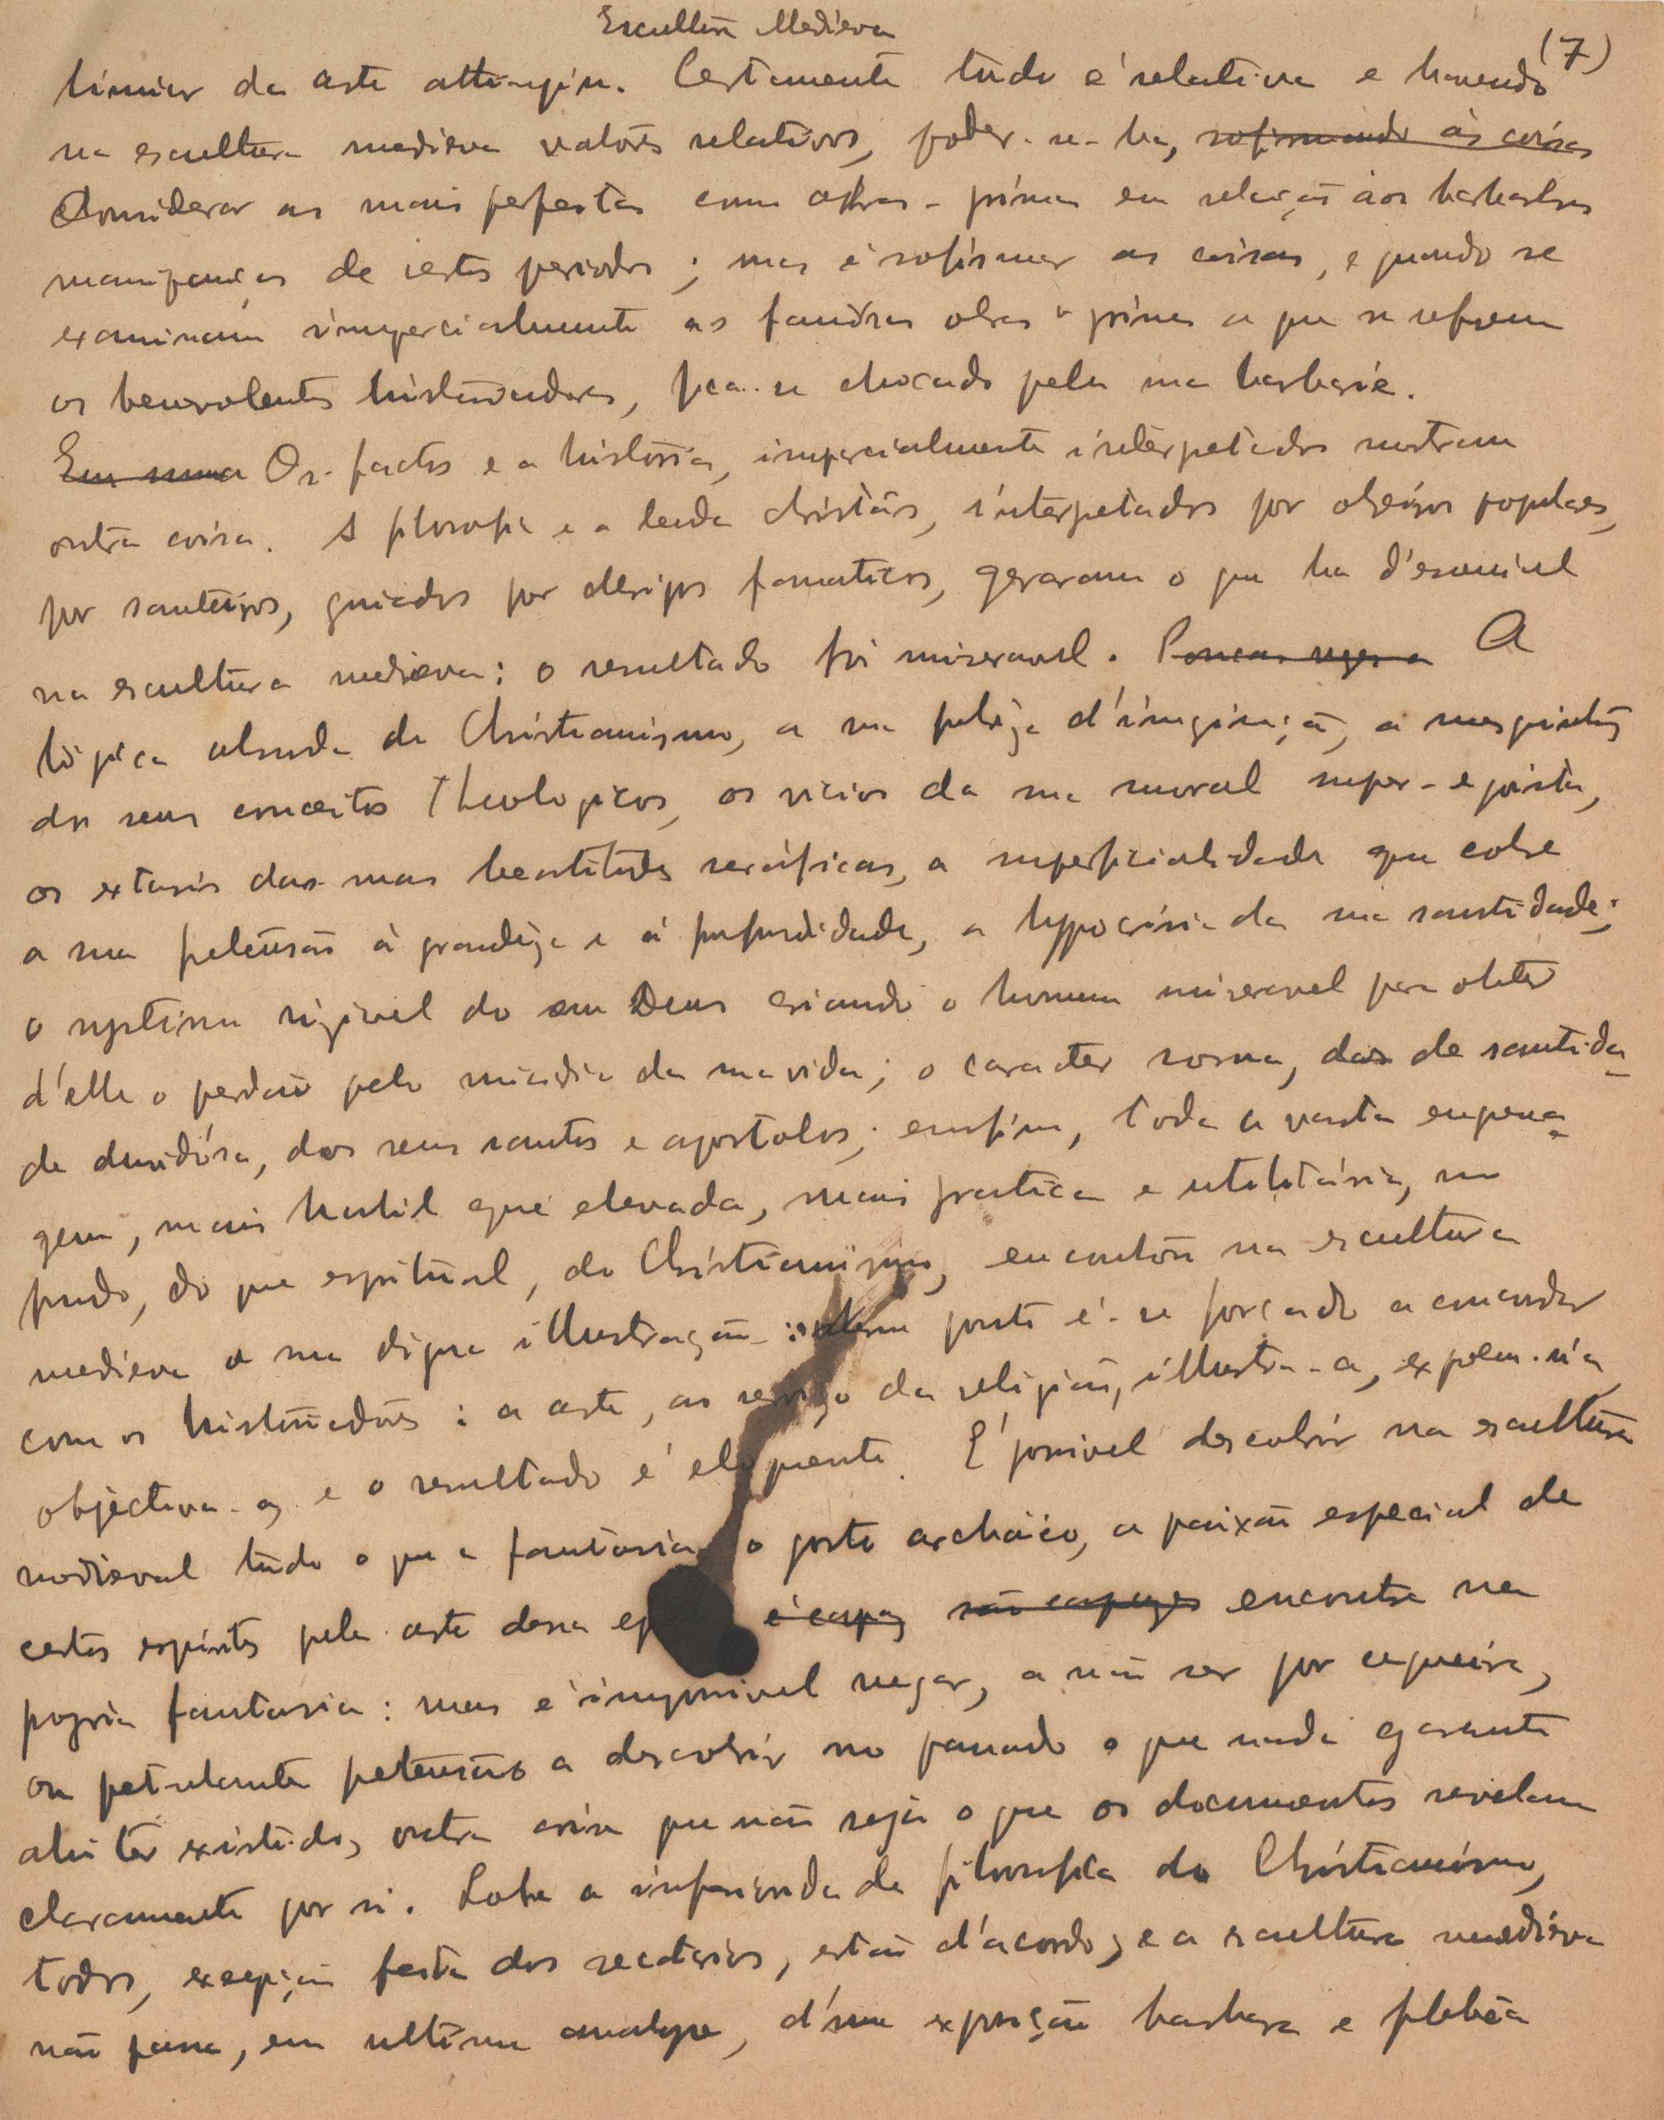 Escultura Medieva
(7)
limiar da arte attingiu. Certamente tudo é relativo e havendo
na escultura medieva valores relativos, poder-se-ha, sofismando as coisas
Considerar as mais perfeitas como obras-primas em relação aos barbarbros
manipanços de certos periodos; mas é sofismar as coisas, e quando se
examinam imparcialmente as famosas obras-primas a que se referem
os benevolentes historiadores, fica-se chocado pela sua barbarie.
Em suma Os factos e a historia, imparcialmente interpetados mostram
outra coisa. A filosofia e a lenda christãs, interpetados por obreiros populares,
por santeiros, guiados por clerigos fanaticos, geraram o que ha d'esculvel
na escultura medieva: o resultado foi miseravel. Poucas vezes a A
lógica absurda do Christianismo, a sua pobreza d'imaginação, a mesquinhez
dos seus conceitos theologicos, os vicios da sua moral super-egoista,
os extasis das suas beatitudes seráficas, a superficialidade que cobre
a sua pretensão à grandeza e á profundidade, a hypocrisia da sua santidade;
o systema risivel do seu Deus criando o homem miseravel para obter
d'elle o perdão pela miseria da sua vida; o caracter sorna, das de santida-
de duvidosa, dos seus santos e apostolos; emfim, toda a vasta engena-
gem, mais hostil que elevada, mais pratica e utilitária, no
fundo, do que espiritual, do Christianismo, encontrou na escultura
medieva a sua digna illustração: n'este ponto é-se forçado a concordar
com os historiadores: a arte, ao serviço da religião, illustra-a, explica-a
objectiva-a, e o resultado é eloquente. É possivel descobrir na escultura
medieval tudo o que a fantasia, o gosto archaico, a paixão especial de
certos espiritos pela arte dessa ep é capaz são capazes encontra na
propria fantasia: mas é impossivel negar, a não ser por cegueira,
ou petulante petensão a descobrir no passado o que nada garante
ahi ter existido, outra coisa que não seja o que os documentos revelam
claramente por si. Sobre a inferioridade filosofica do Christianismo,
todos, excepção feita dos sectarios, estão d'acordo; e a escultura medieva
não passa, em ultima analyse, d'uma exposição barbara e plebêa